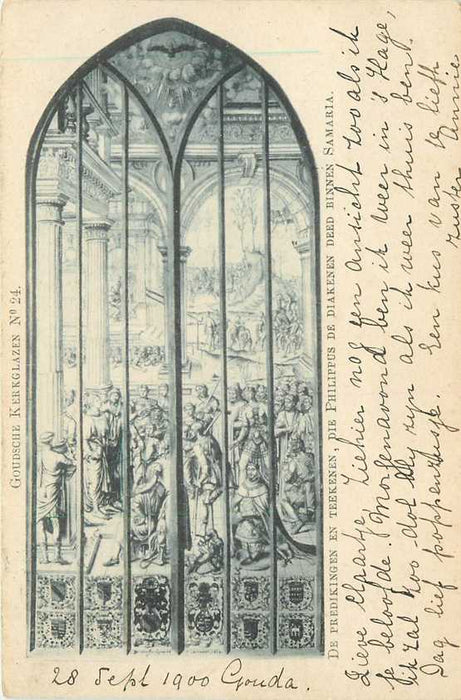 GOUDSCHE KERKGLAZEN No 24.
DE PREDIKINGEN EN TEEKENEN, DIE PHILIPPUS DE DIAKENEN DEED BINNEN SAMARIA.
Lieve Elsaartje Liehier nog een ansicht zoo als ik
je beloofde. Morgenavond ben ik weer in 's Hage,
ik zal zoo dol blij zijn als ik weer thuis ben.
Dag lief poppenzusje. Een kus van je liefh
zuster Annie
28 Sept 1900 Gouda.